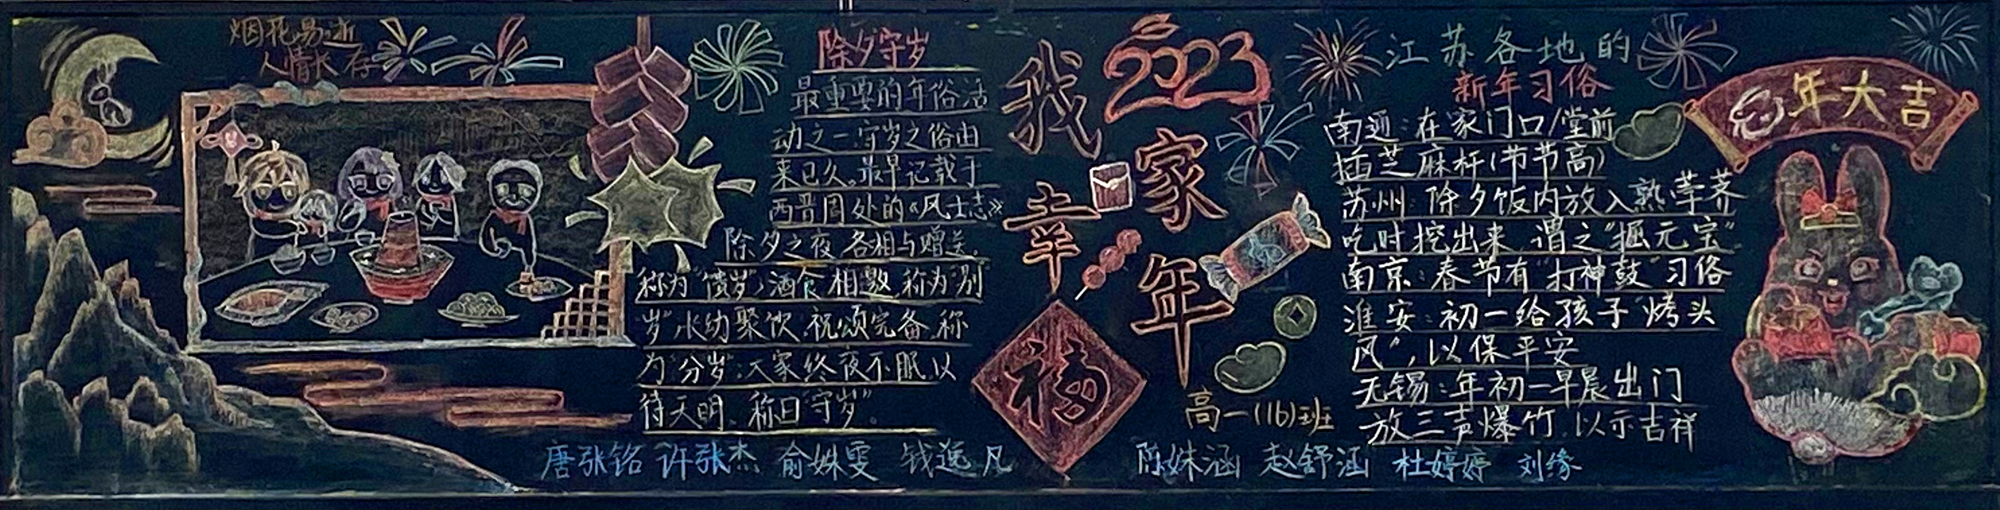 烟花易逝
人情长存
除夕守岁
最重要的年俗活
动之一守岁之俗由
来已久。最早记载于
西晋周处的《风土志》
除夕之夜各相与赠送。
称为"馈岁";酒食相邀,称为"别
岁"长幼聚饮,祝颂完备,称
为"分岁";大家终夜不眠,以
待天明、称曰"守岁"。
2023
我家
幸福年
高一(16)班
江苏各地的
新年习俗
南通:在家门口/堂前
插芝麻杆(节节高)
苏州 除夕饭内放入熟荸荠
吃时挖出来,谓之"掘元宝"
南京:春节有"打神鼓"习俗
淮安:初一给孩子"烤头
风",以保平安
无锡:年初一早晨出门
放三声爆竹,以示吉祥
年大吉
唐张铭 许张杰 俞姝雯 钱逸凡 陈姝涵 赵舒涵 杜婷婷 刘缘